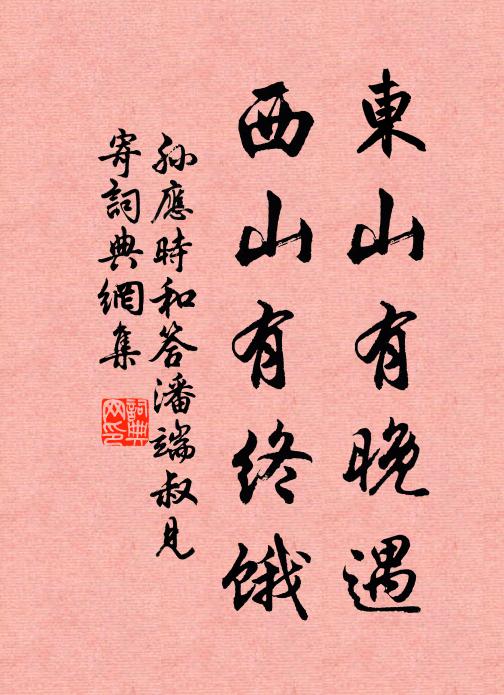 東山有晚遇
西山有終餓
孫應時和答潘端叔見
寄詞典網集
詞典
网印